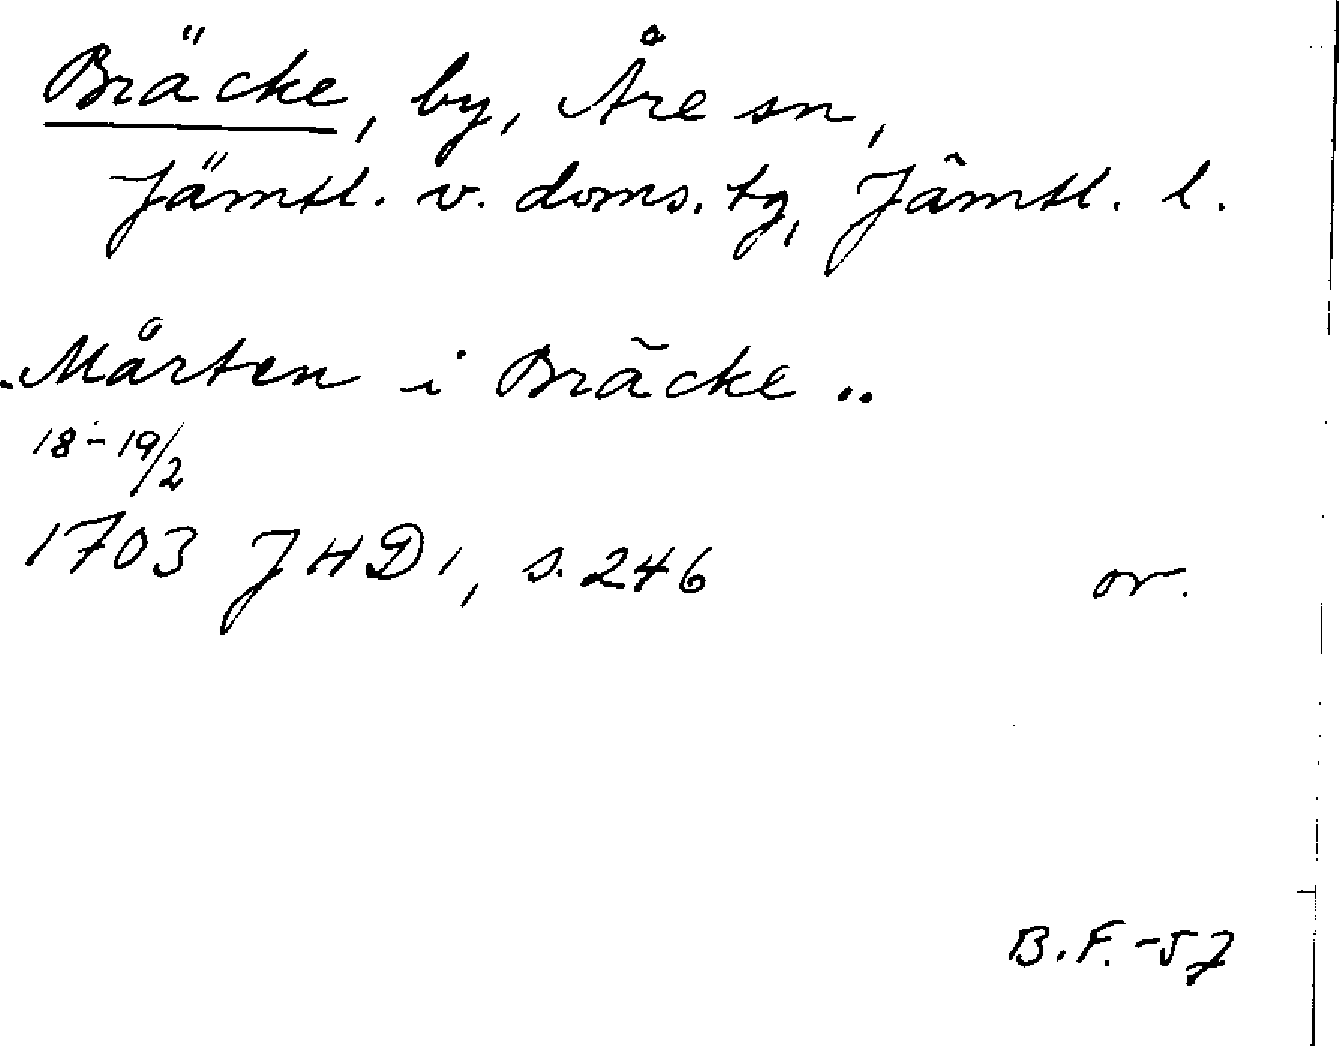 Bräcke, by, Åre sn,
Jämtl. v. doms. tg, Jämtl. l.
.Mårten i Bräcke ..
18-19/2
1703 JHD 1, s. 246 or.
B.F. -57